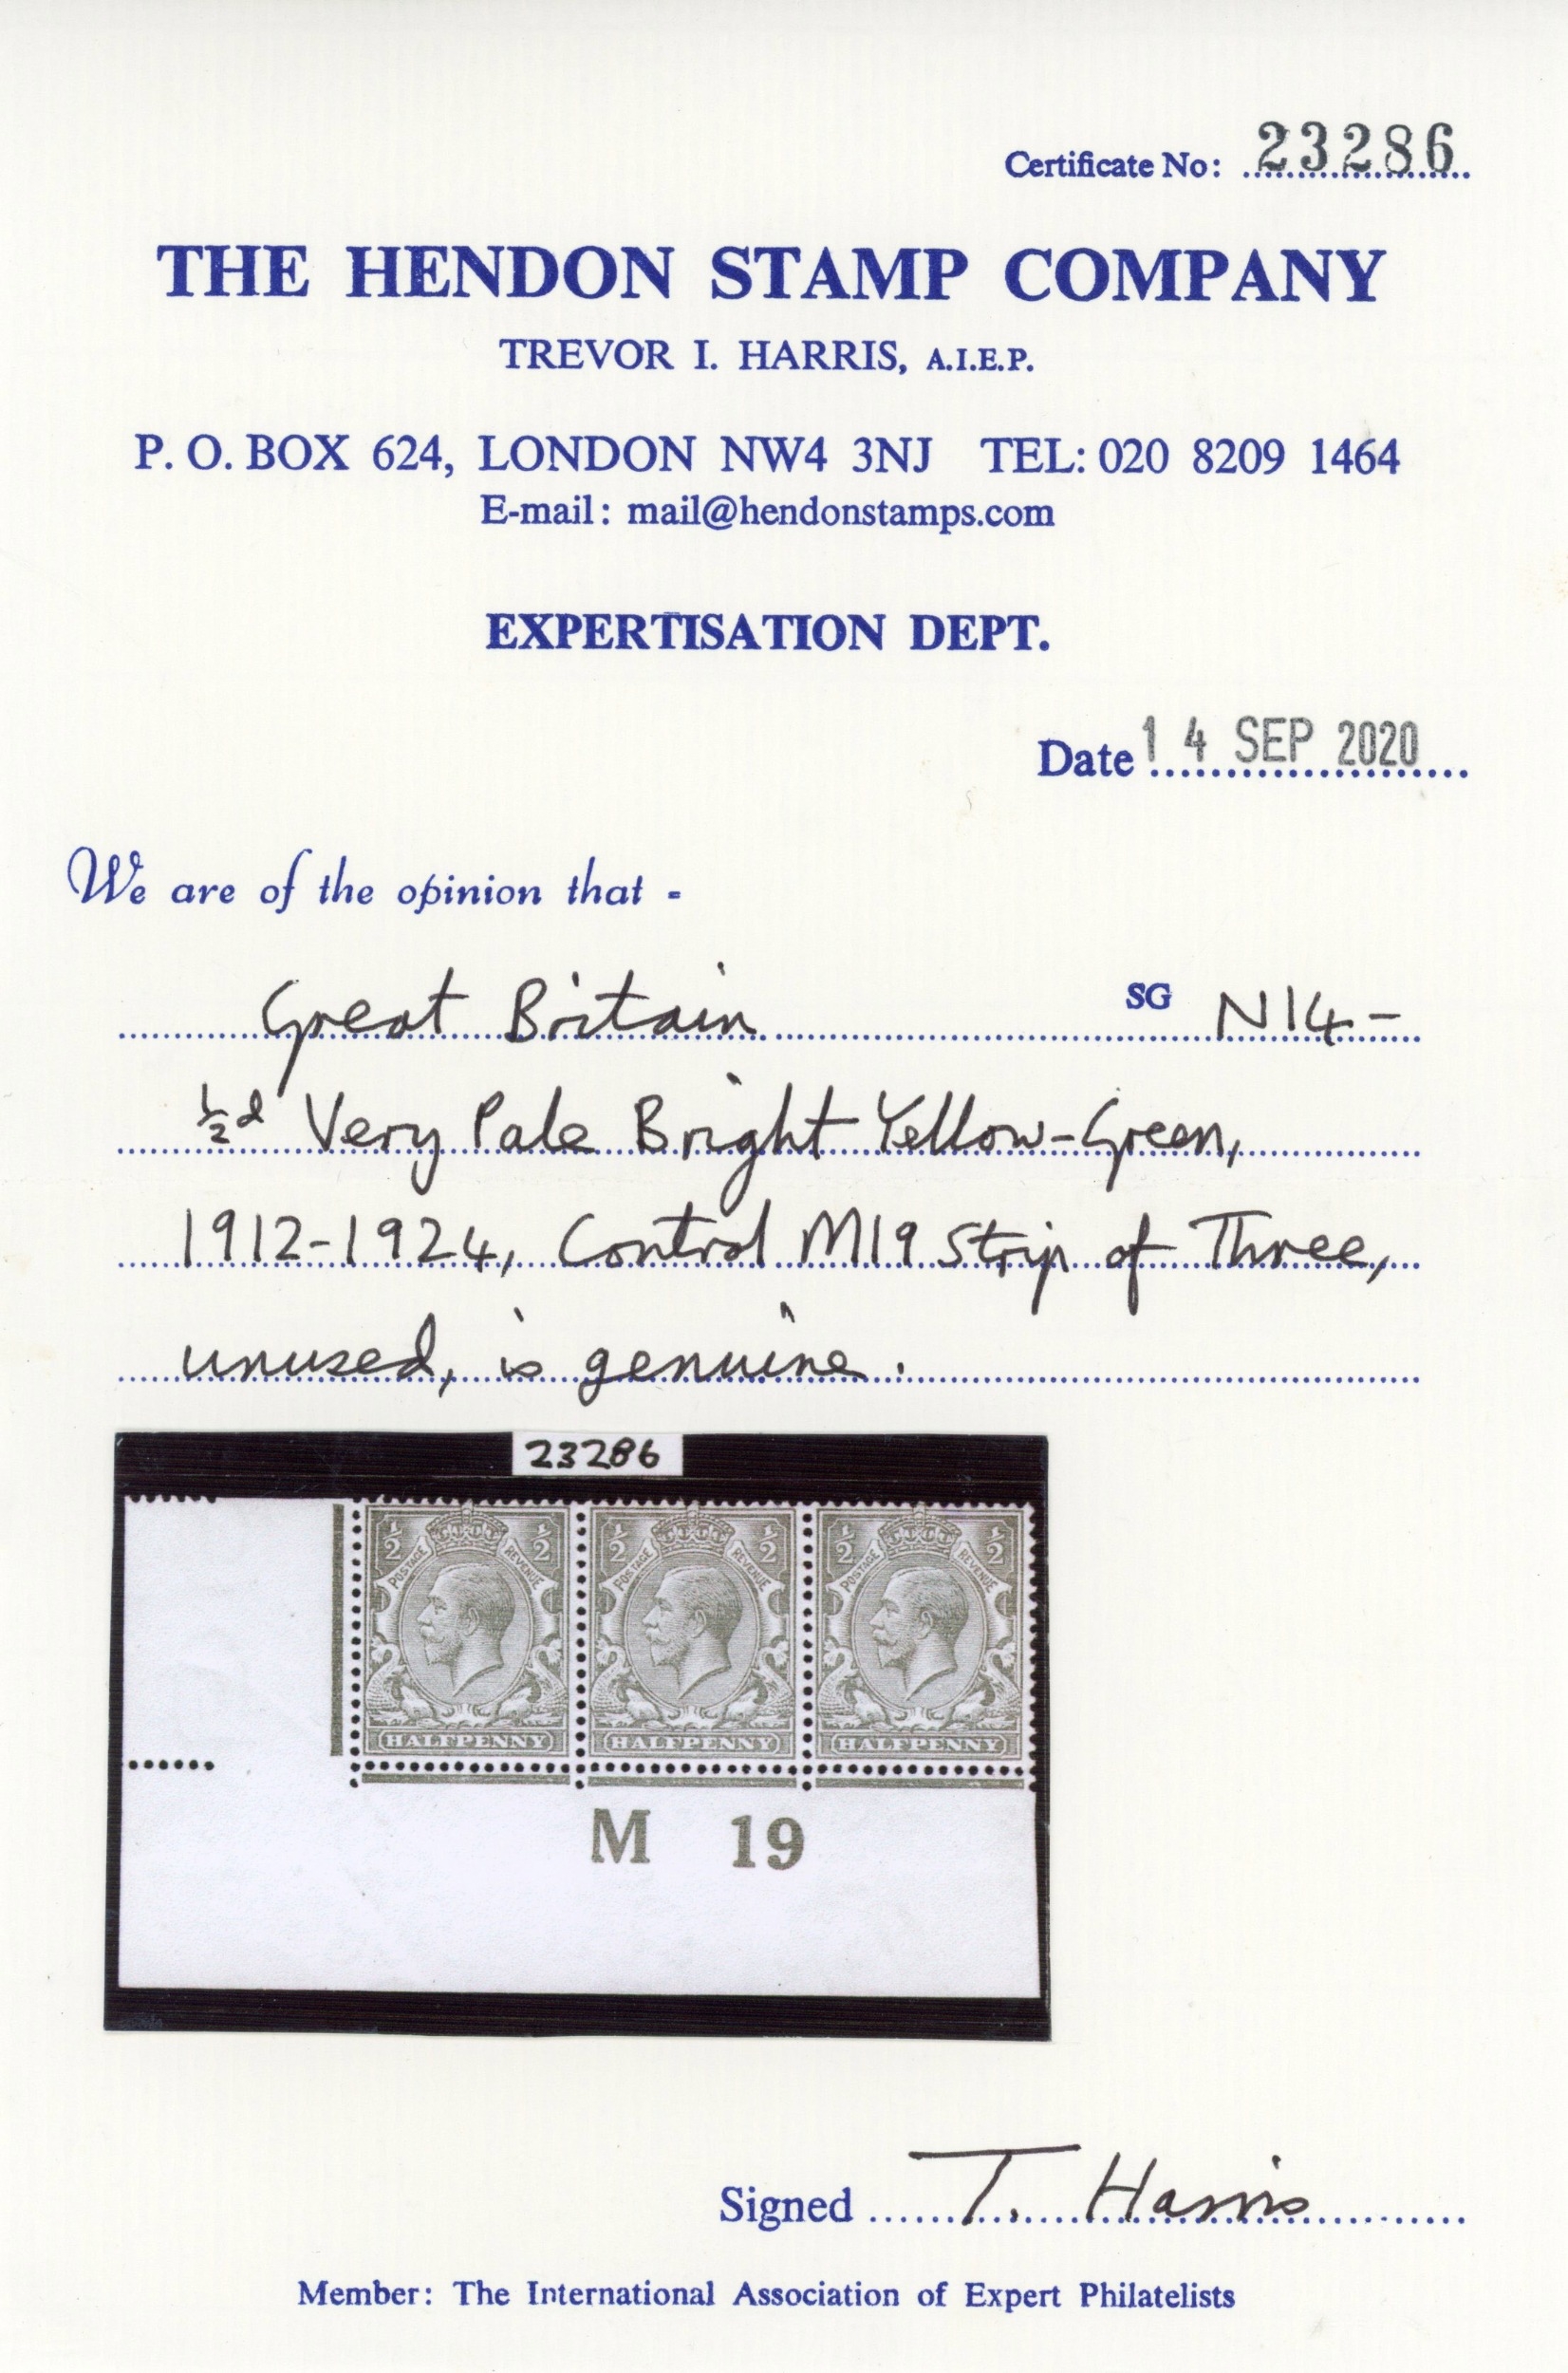 Certificate No: 23286
THE HENDON STAMP COMPANY
TREVOR I. HARRIS, A.I.E.P.
P. O. BOX 624, LONDON NW4 3NJ TEL: 020 8209 1464
E-mail: mail@hendonstamps.com
EXPERTISATION DEPT.
Date 14 SEP 2020
We are of the opinion that -
Great Britain SG N14-
½d Very Pale Bright Yellow-Green,
1912-1924, Control M19 Strip of Three,
unused, is genuine.
23286
½ ½ ½ ½ ½ ½
POSTAGE REVENUE POSTAGE REVENUE POSTAGE REVENUE
HALFPENNY HALFPENNY HALFPENNY
M 19
Signed T. Harris
Member: The International Association of Expert Philatelists